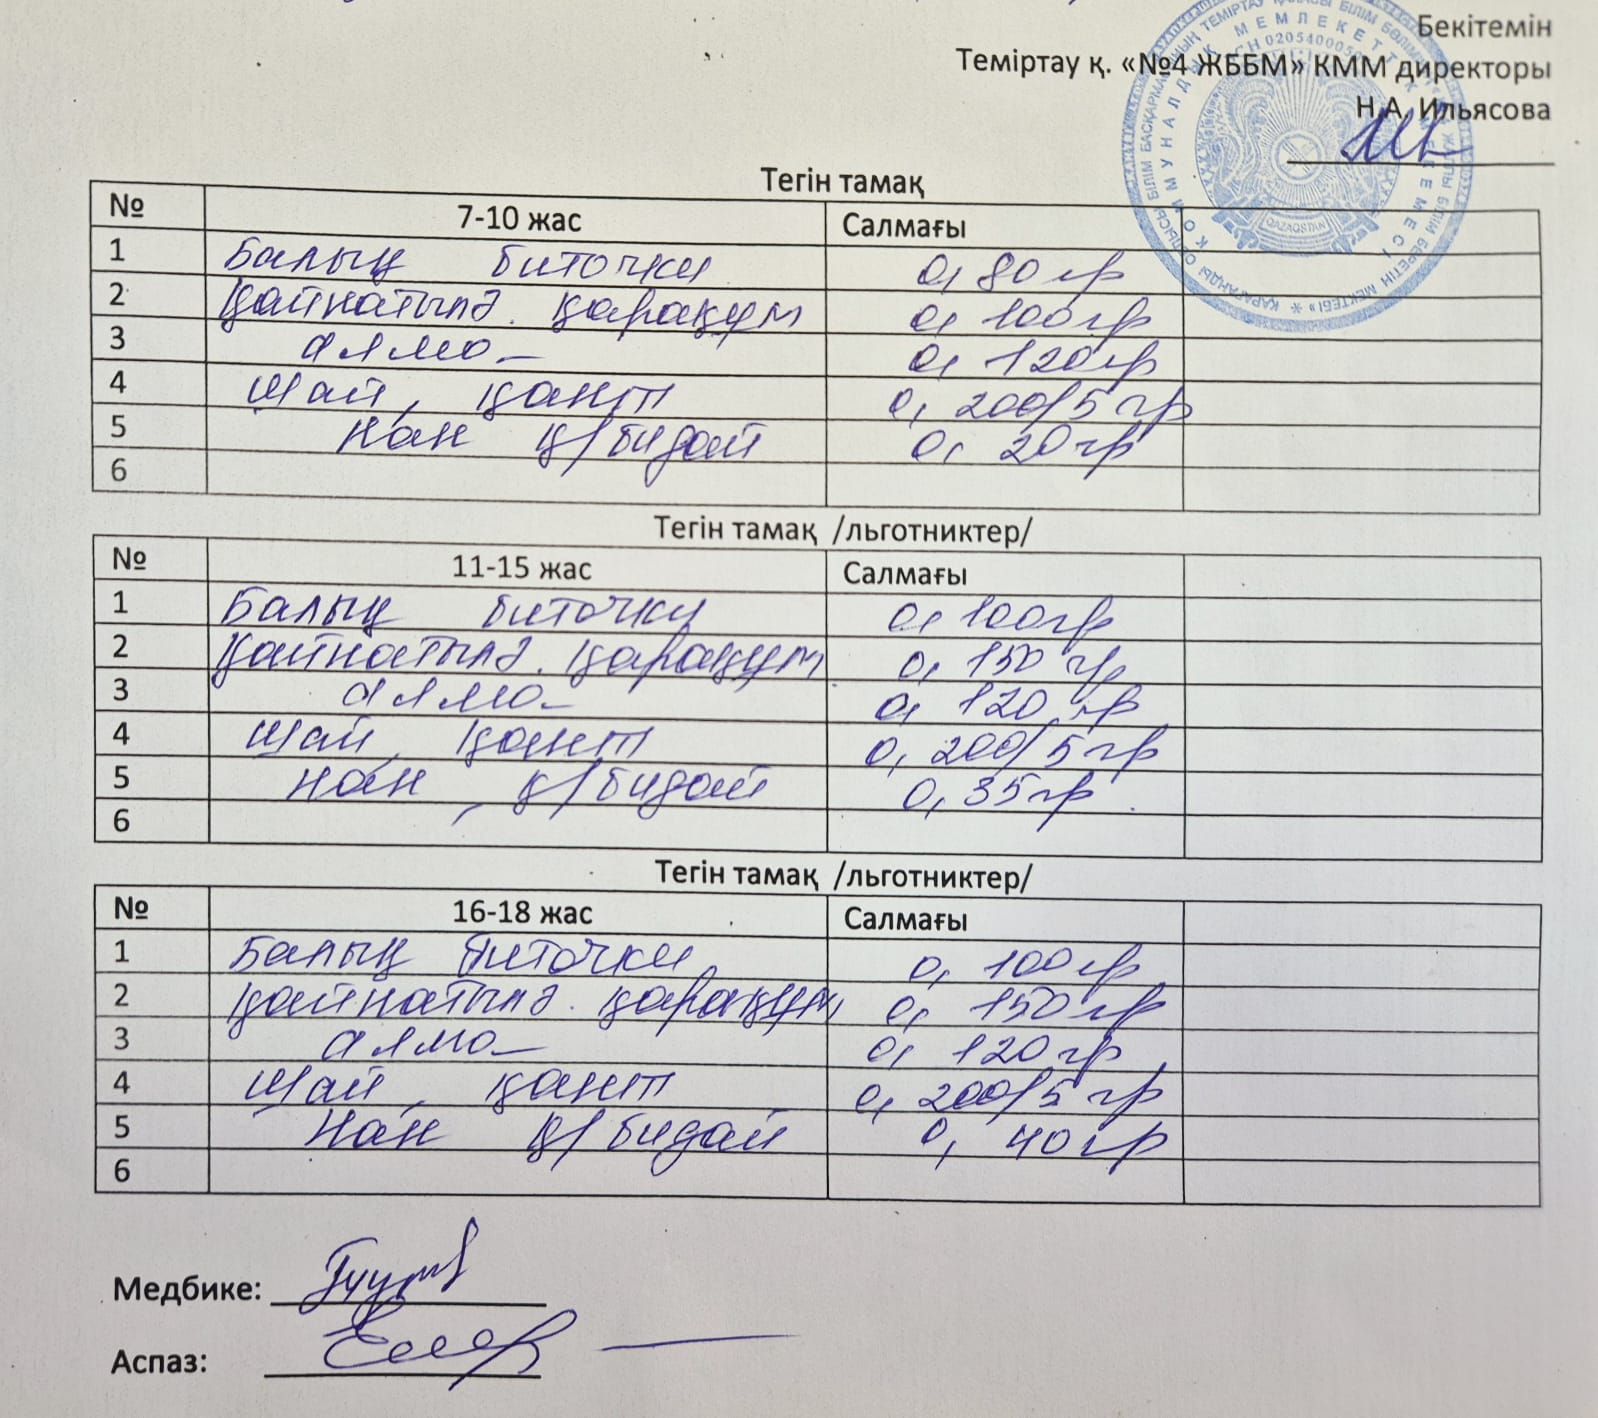 Бекітемін
Теміртау қ. «№4 ЖББМ» КММ директоры
Н.А. Ильясова
Тегін тамақ
№ 7-10 жас Салмағы
1 Балық биточки 0,80гр
2 Қайнатылғ. қарақұм 0,100гр
3 алма 0,120гр
4 Шай, қант 0,200/5гр
5 Нан қ/бидай 0,20гр
6
Тегін тамақ /льготниктер/
№ 11-15 жас Салмағы
1 Балық биточки 0,100гр
2 Қайнатылғ. қарақұм 0,150гр
3 алма 0,120гр
4 Шай, қант 0,200/5гр
5 Нан, қ/бидай 0,35гр
6
Тегін тамақ /льготниктер/
№ 16-18 жас Салмағы
1 Балық биточки 0,100гр
2 Қайнатылғ. қарақұм 0,150гр
3 алма 0,120гр
4 Шай, қант 0,200/5гр
5 Нан қ/бидай 0,40гр
6
Медбике:
Аспаз: